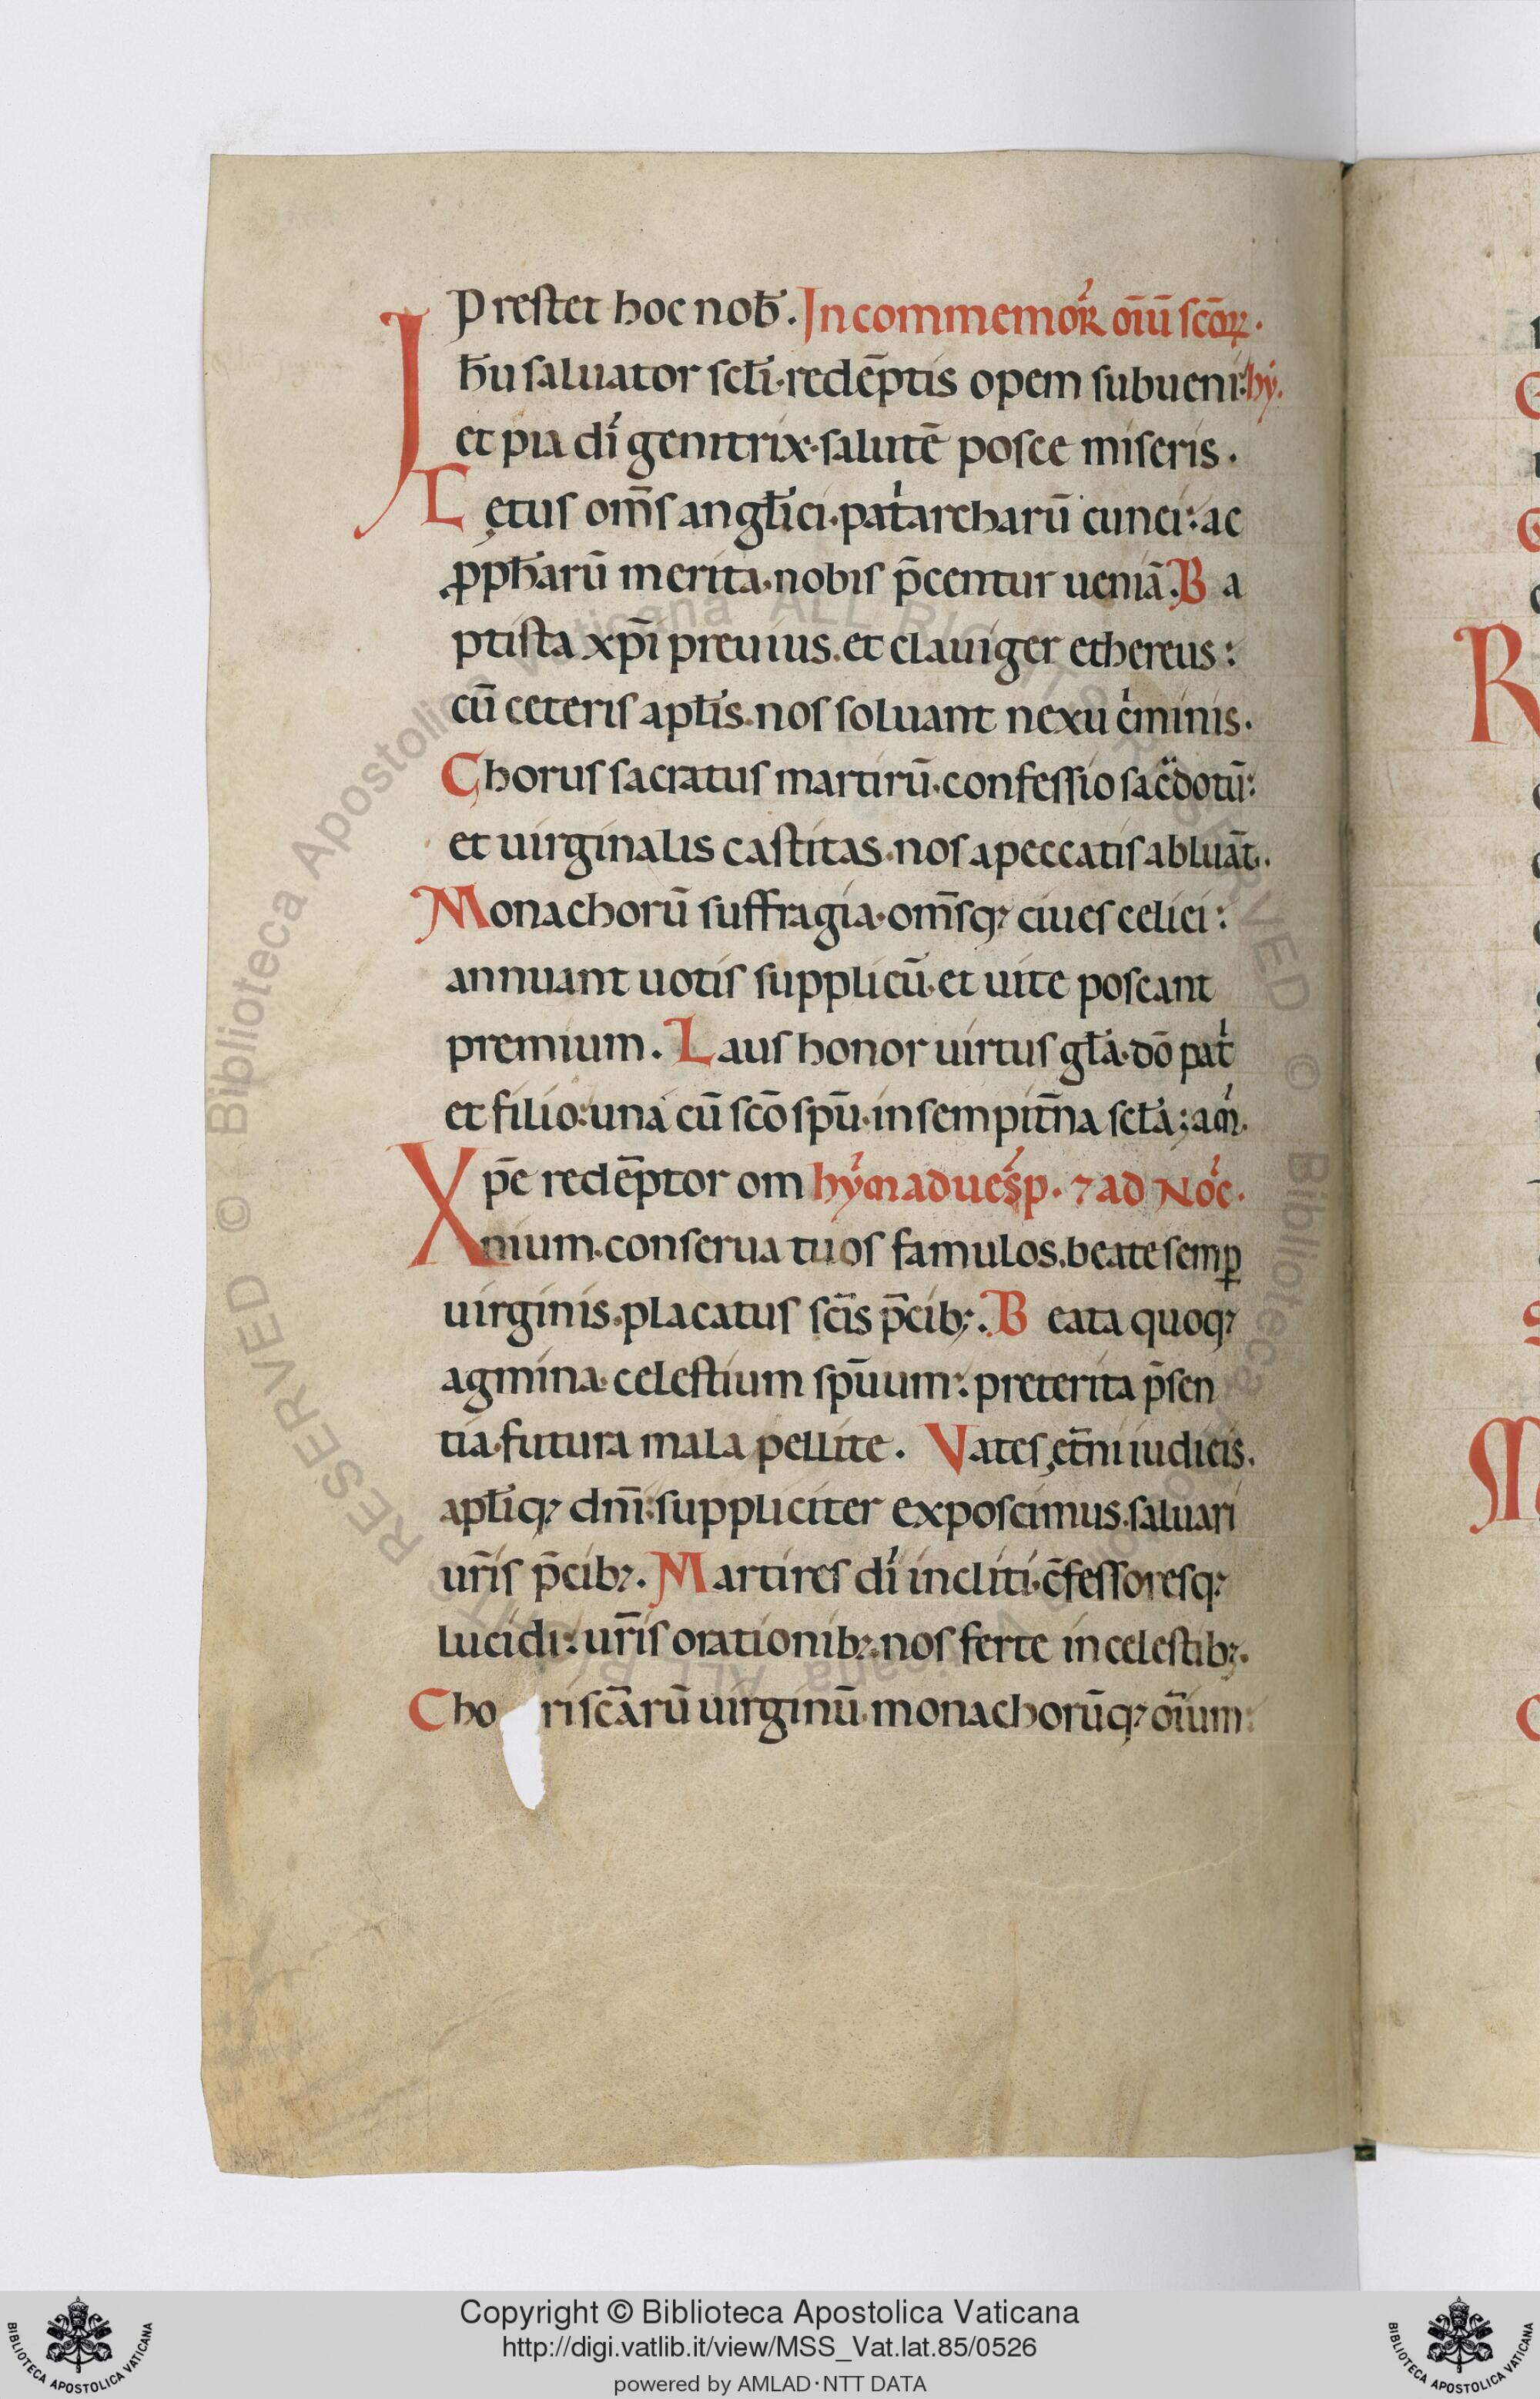 Prestet hoc nob̄. In commemoŕ oīū sc̄oꝝ.
Ih̄u saluator sc̄li·redēptis opem subueni: hȳ.
et pia dí genitrix·salutē posce miseris.
Lętus om̄s angl̄ici·pat͛archarū cunei: ac
ꝓph̄arū merita·nobis p̄centur ueniā. Ba
ptista xp̄i preuius. et clauiger ethereus:
cū ceteris apl̄is. nos soluant nexu c͛minis.
Chorus sacratus martirū·confessio sac̄dotū:
et uirginalis castitas·nos a peccatis abluāt.
Monachorū suffragia·om̄sq; ciues celici:
annuant uotis supplicū·et uite poscant
premium. Laus honor uirtus gl̄a·dō pat͛
et filio: una cū sc̄o sp̄u·in sempit̄na sc̄la; am̄.
Xp̄e redēptor om hȳm ad uesp. ⁊ ad Noc̄.
nium·conserua tuos famulos. beate semꝑ
uirginis·placatus sc̄is p̄cib;. Beata quoq;
agmina·celestium sp̄uum: preterita p̄sen
tia·futura mala pellite. Vates ęt̄ni iudicis.
apl̄iq; dn̄i: suppliciter exposcimus. saluari
ur̄is p̄cib;. Martires dí incliti·c̄fessoresq;
lucidi: ur̄is orationib;. nos ferte in celestib;.
Chori sc̄arū uirginū·monachorūq; oīum:
Copyright © Biblioteca Apostolica Vaticana
http://digi.vatlib.it/view/MSS_Vat.lat.85/0526
powered by AMLAD·NTT DATA